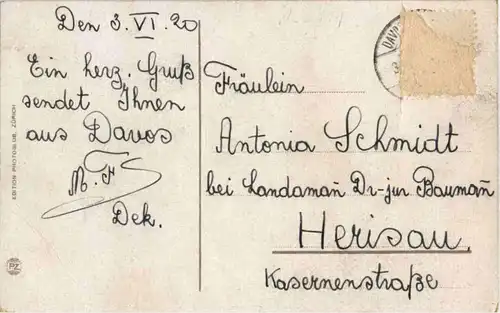 Den 3. VI. 20
Ein herz. Gruß
sendet Ihnen
aus Davos
Dek.
EDITION PHOTOGLOB, ZÜRICH
PZ
DAV
Fräulein
Antonia Schmidt
bei Landamañ Dr-jur Baumañ
Herisau.
Kasernenstraße